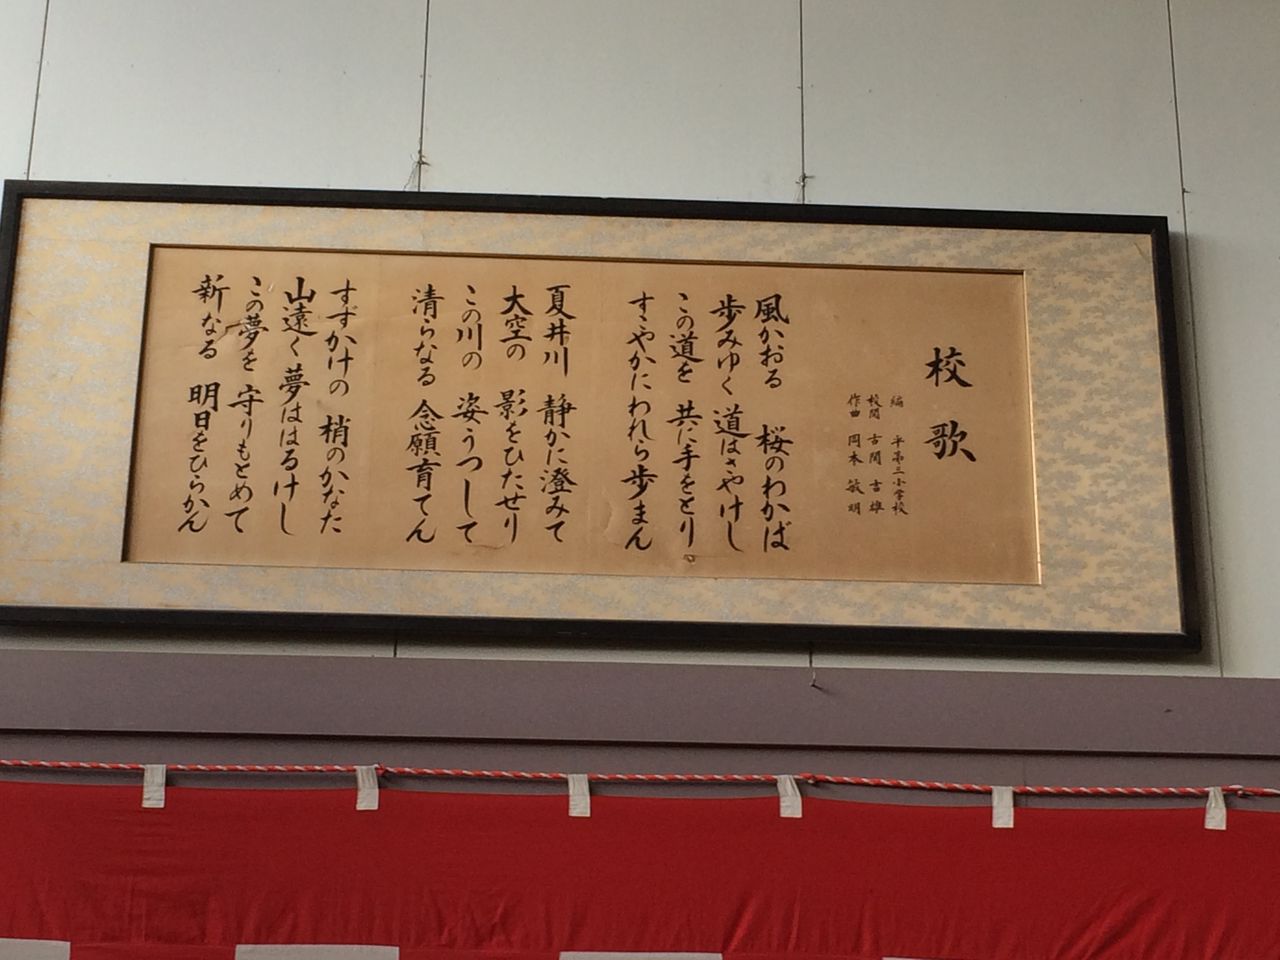 校歌
編 平第三小学校
校閲 古関 吉雄
作曲 岡本 敏明
風かおる 桜のわかば
歩みゆく 道はさやけし
この道を 共に手をとり
すこやかに われら歩まん
夏井川 静かに澄みて
大空の 影をひたせり
この川の 姿うつして
清らなる 念願育てん
すずかけの 梢のかなた
山遠く 夢ははるけし
この夢を 守りもとめて
新なる 明日をひらかん